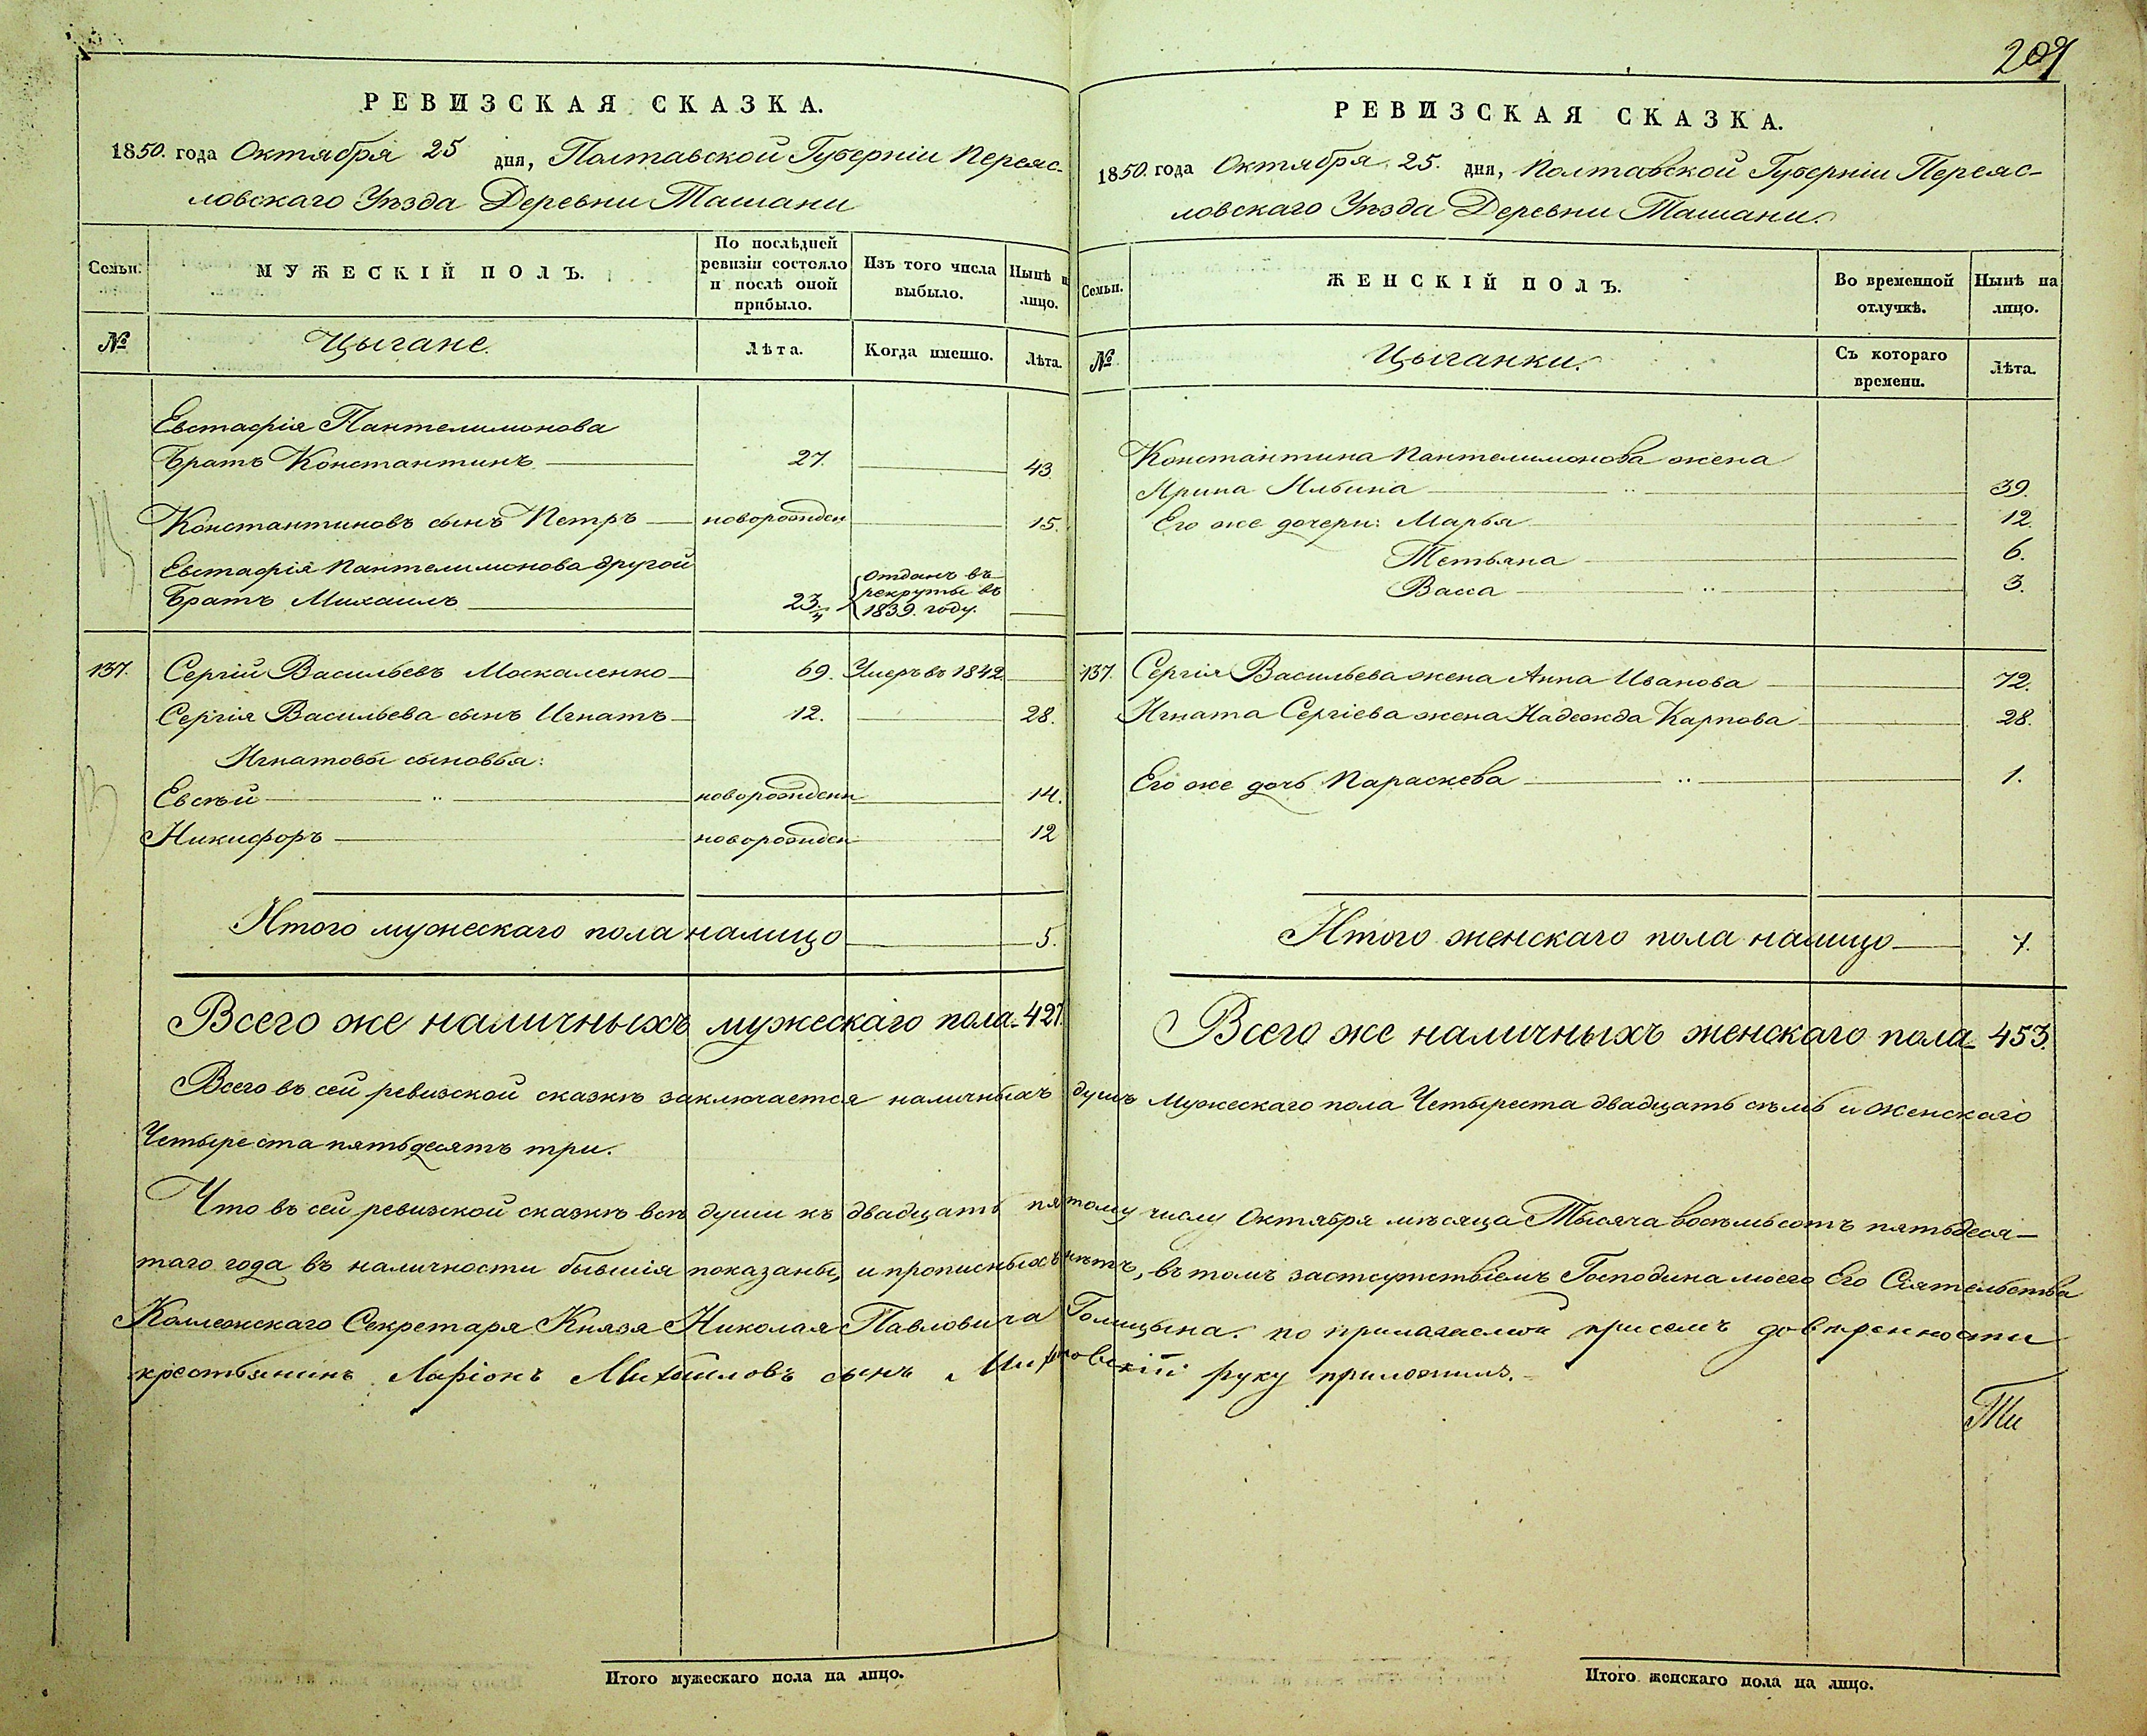 209
РЕВИЗСКАЯ СКАЗКА.
1850. года Октября 25 дня, Полтавской Губерніи Переяс-
ловскаго Уѣзда Деревни Ташани
Семьи.
МУЖЕСКІЙ ПОЛЪ.
По послѣдней
ревизіи состояло
и послѣ оной
прибыло.
Изъ того числа
выбыло.
Нынѣ н
лицо.
№
Цыгане.
Лѣта.
Когда именно.
Лѣта.
Евстафія Пантелимонова
Братъ Константинъ 27. 43.
Константиновъ сынъ Петръ новорожден 15.
Евстафія Пантелимонова другой
Братъ Михаилъ 23. Отданъ въ
рекруты въ
1839. году.
137. Сергій Васильевъ Москаленко 69. Умеръ въ 1842
Сергія Васильева сынъ Игнатъ 12. 28.
Игнатовы сыновья:
Евсѣй новорожденн 14.
Никифоръ новорожден 12
Итого мужескаго пола налицо 5.
Всего же наличныхъ мужескаго пола 427.
РЕВИЗСКАЯ СКАЗКА.
1850. года Октября 25. дня, Полтавской Губерніи Переяс-
ловскаго Уѣзда Деревни Ташани.
Семьи.
ЖЕНСКІЙ ПОЛЪ.
Во временной
отлучкѣ.
Нынѣ на
лицо.
№
Цыганки.
Съ котораго
времени.
Лѣта.
Константина Пантелимонова жена
Ярина Ильина 39.
Его же дочери: Марья 12.
Тетьяна 6.
Васса 3.
137. Сергія Васильева жена Анна Иванова 72.
Игната Сергіева жена Надежда Карпова 28.
Его же дочь Параскева 1.
Итого женскаго пола налицо 7.
Всего же наличныхъ женскаго пола 453.
Всего въ сей ревизской сказкѣ заключается наличныхъ душъ Мужескаго пола Четыреста двадцать сѣмь и женскаго
Четыреста пятьдесятъ три.
Что въ сей ревизской сказкѣ всѣ души къ двадцать пятому числу Октября мѣсяца Тысяча восѣмьсотъ пятьдеся-
таго года въ наличности бывшія показаны, и прописныхъ нѣтъ, въ томъ Господина моего Его Сіятельства
Коллежскаго Секретаря Князя Николая Павловича Голицына. по прилагаемой присемъ довѣренности
крестьянинъ Ларіонъ Михаиловъ сынъ руку приложилъ.
Итого мужескаго пола на лицо.
Итого женскаго пола на лицо.